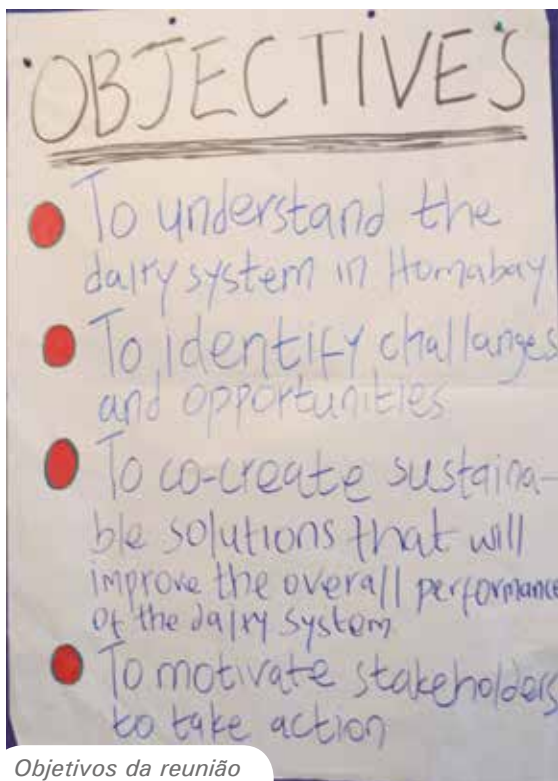 OBJECTIVES
To understand the
dairy system in Homabay
To identify challanges
and opportunities
To co-create sustaina-
ble solutions that will
improve the overall performance
of the dairy system
To motivate stakeholders
to take action
Objetivos da reunião